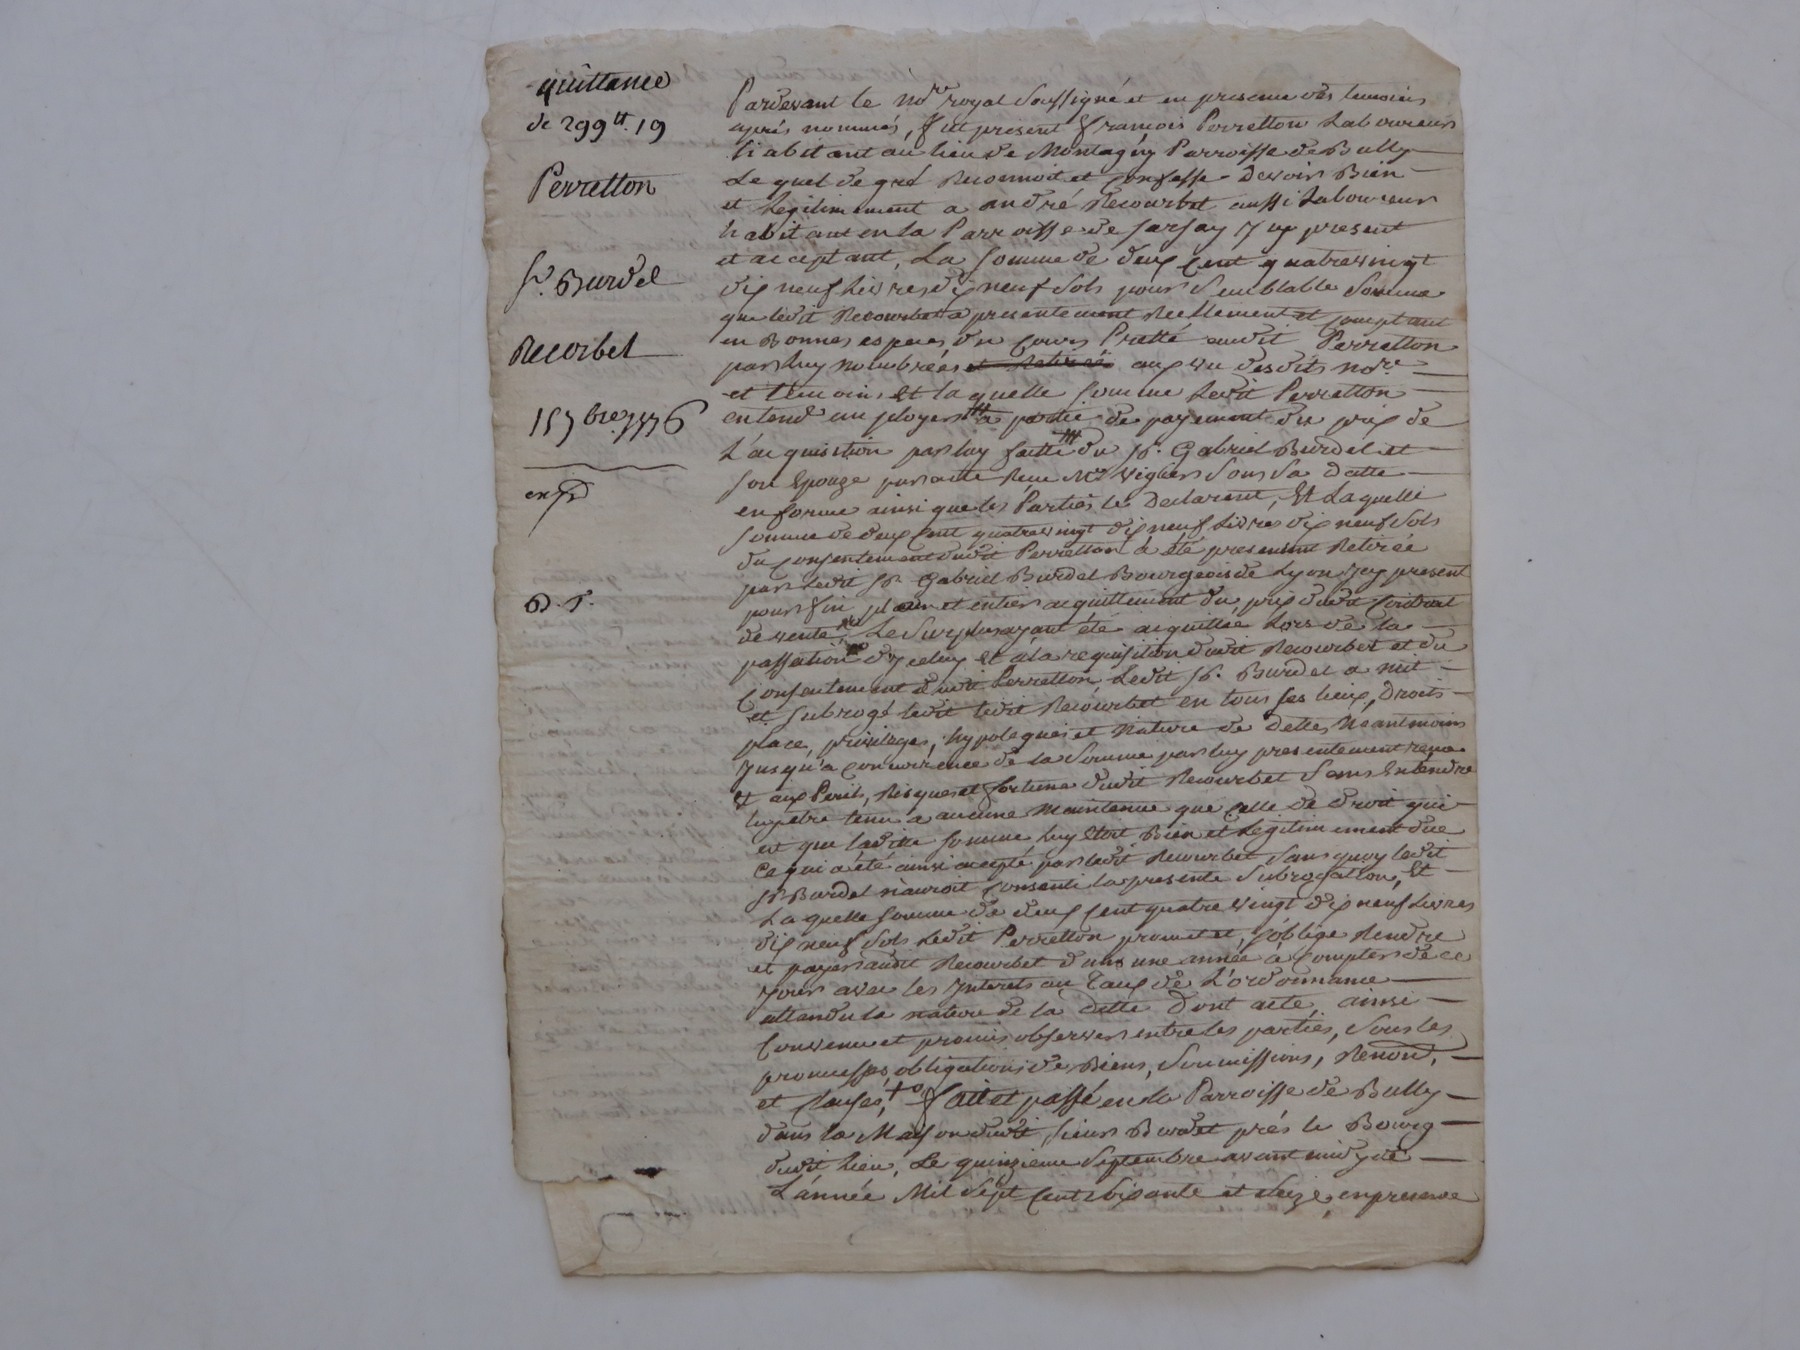 quittance
de 299tt. 19
Perretton
Sr. Burdel
Recorbet
15 7bre 1776
exp
Pardevant le nore royal soussigné et en presence des temoins
aprés nommés, fut present François Perretton Laboureur
habitant au lieu de Montagny Parroisse de Bully
Lequel de gré Reconnoit et Confesse Devoir Bien
et Legitimement a andré Recourbet aussi Laboureur
habitant en la Parroisse de Sarsay icy present
et acceptant, La somme de deux Cent quatrevingt
dix neuf Livres dix neuf sols pour semblable somme
que ledit Recourbet a presentement Reellement et comptant
en Bonnes especes du Cours Pretté audit Perretton
par luy nombrées et Retirée aux vu desdits nore
et temoins et laquelle somme Ledit Perretton
entend employer a partie de payement du prix de
L'acquisition par luy faitte du Sr. Gabriel Burdel et
son Epouze par acte Recu Me Viguier sous sa datte
en forme ainsi que les Parties le Declarent, Et Laquelle
somme de deux Cent quatrevingt dix neuf Livres dix neuf sols
du consentement dudit Perretton a été presentement Retirée
par Ledit Sr. Gabriel Burdel Bourgeois de Lyon icy present
pour fin plein et entier acquittement du prix dudit Contrat
de vente, Le Surplus ayant été acquitté Lors de la
passation d'yceluy Et à la requisition dudit Recourbet et du
Consentement dudit Perretton, Ledit Sr. Burdel a mit
et subrogé ledit ledit Recourbet en tous ses lieux, Droits
place, privileges, hypoteques et Nature de Dette, Neantmoins
Jusqu'a concurrence de la Somme par luy presentement reçue
Et aux Perils, Risques et fortune dudit Recourbet sans Entendre
luy etre tenu a aucune Maintenue que Celle de droit qui
est que laditte somme luy étoit Bien et Legitimement due
Ce qui a été ainsi accepté par ledit Recourbet sans quoy ledit
Sr Burdel n'auroit consenti la presente subrogation, Et
Laquelle somme de deux Cent quatre vingt dix neuf Livres
dix neuf sols Ledit Perretton promet et s'oblige Rendre
et payer audit Recourbet dans une année à compter de ce
jour avec les Interets au Taux de L'ordonnance
attendu la nature de la Dette Dont acte, ainsi
Convenu et promis observer entre les parties, sous les
promesses, obligations de Biens, soumissions, Renon,
et Clauses, fait et passé en la Parroisse de Bully
dans la Maison dudit sieur Burdel prés le Bourg
dudit Lieu, Le quinzieme Septembre avant midy de
L'année Mil Sept Cent Soixante et Seize, en presence